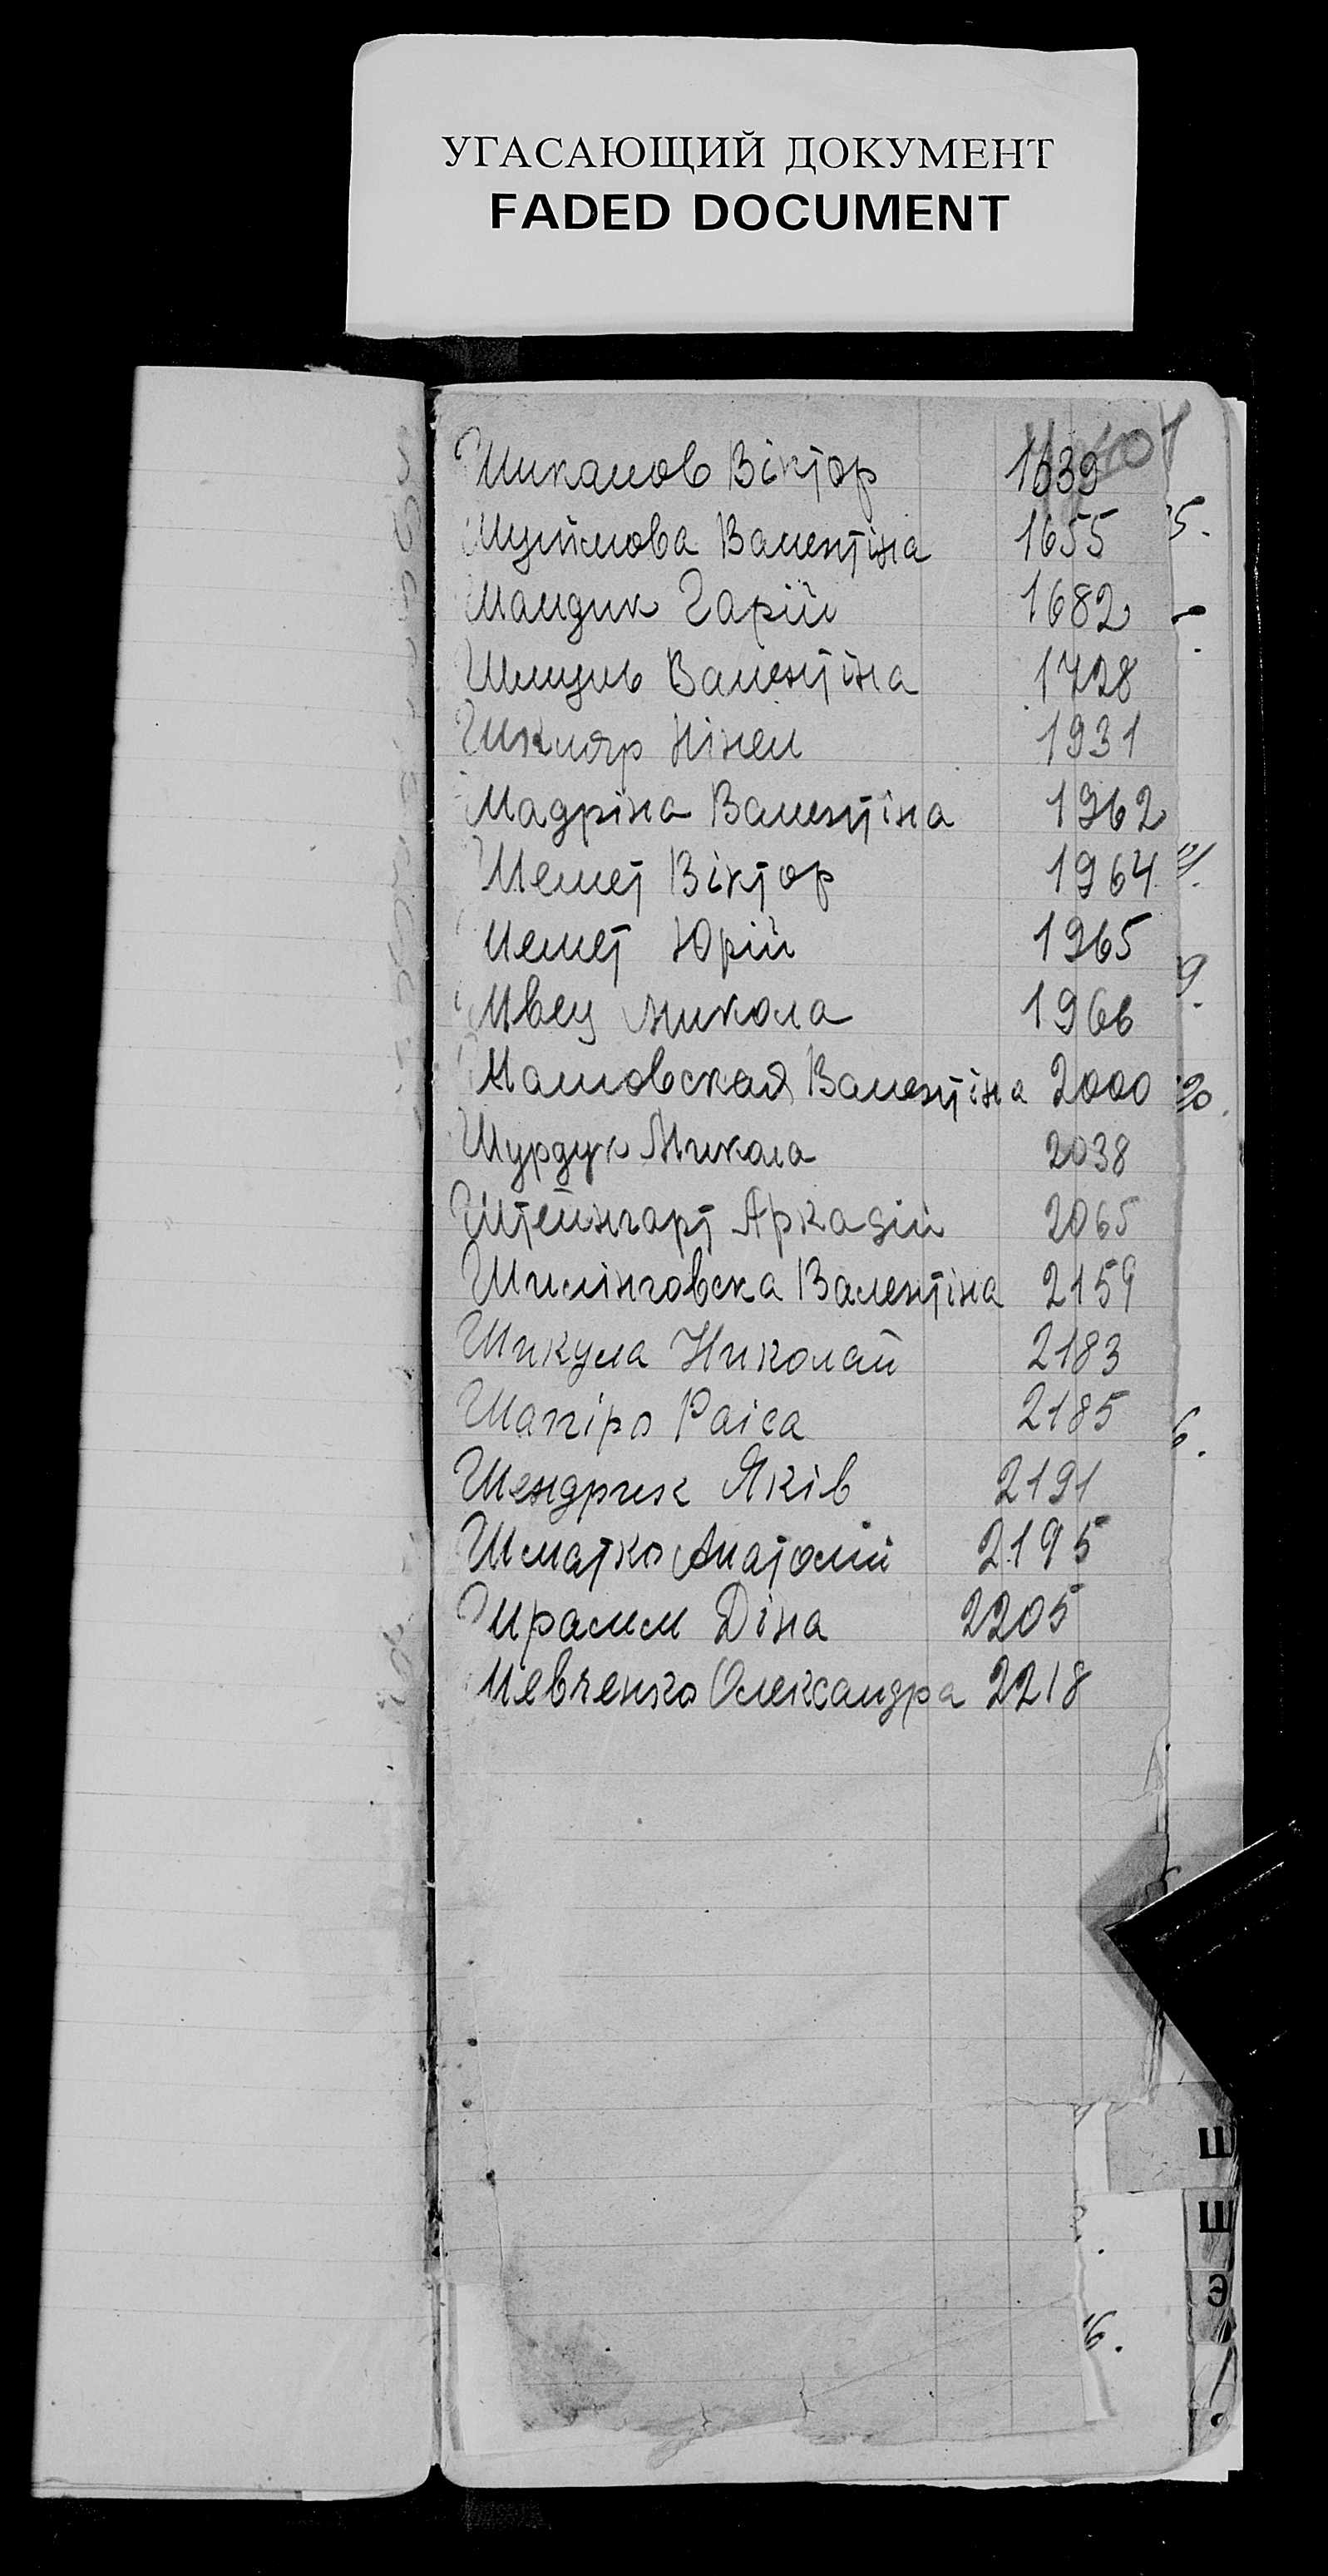 УГАСАЮЩИЙ ДОКУМЕНТ
FADED DOCUMENT
Шиканов Віктор 1639
Шуймова Валентіна 1655
Шандик Гарій 1682
Шмуль Валентіна 1728
Шкляр Нінел 1931
Шадріна Валентіна 1962
Шемет Віктор 1964
Шемет Юрій 1965
Швец Микола 1966
Шамовская Валентіна 2000
Шурдук Микола 2038
Штейнгарт Аркадій 2065
Шилінговска Валентіна 2159
Шикула Николай 2183
Шапіро Раіса 2185
Шендрик Яків 2191
Шматко Анатолій 2195
Шрамм Діна 2205
Шевченко Олександра 2218
Ш
Э